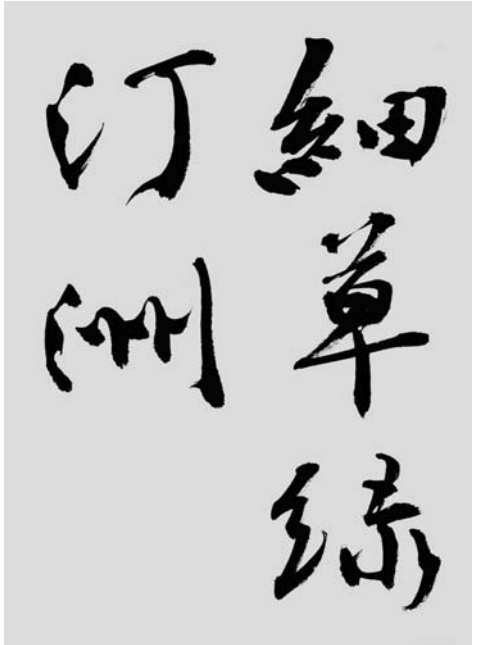 細草緑
汀洲